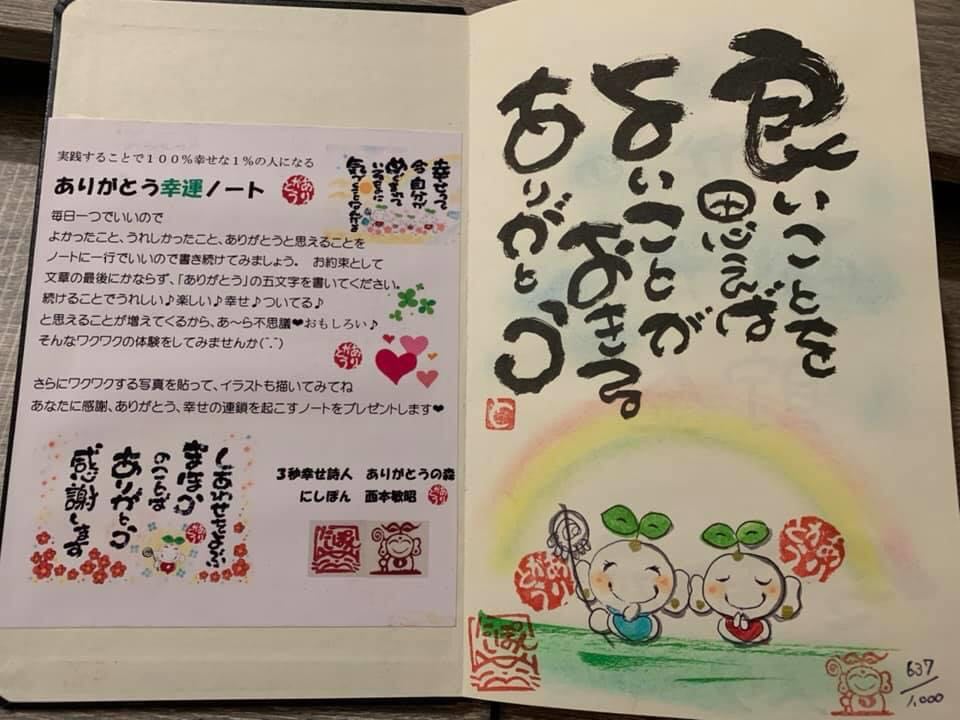 実践することで１００％幸せな１％の人になる
ありがとう幸運ノート
ありがとう
幸せって
今自分が
めぐまって
いるコトに
気づくことなんだなぁ
毎日一つでいいので
よかったこと、うれしかったこと、ありがとうと思えることを
ノートに一行でいいので書き続けてみましょう。 お約束として
文章の最後にかならず、「ありがとう」の五文字を書いてください。
続けることでうれしい♪楽しい♪幸せ♪ついてる♪
と思えることが増えてくるから、あ～ら不思議❤おもしろい♪
そんなワクワクの体験をしてみませんか(^.^)
ありがとう
さらにワクワクする写真を貼って、イラストも描いてみてね
あなたに感謝、ありがとう、幸せの連鎖を起こすノートをプレゼントします❤
しあわせをよぶ
まほう
のことば
ありがとう
感謝します
３秒幸せ詩人　ありがとうの森
にしぽん　西本敏昭
良いことを
思えば
よいことが
おきる
ありがとう
ありがとう
ありがとう
にしぽん
637/1,000